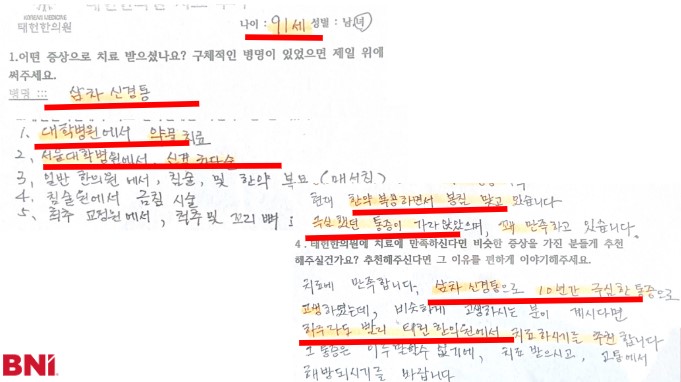 KOREAN MEDICINE
태헌한의원
나이 : 91세 성별 : 남,녀
1.어떤 증상으로 치료 받으셨나요? 구체적인 병명이 있었으면 제일 위에
써주세요.
병명 ::: 삼차 신경통
1, 대학병원에서 약물 치료
2, 서울대학병원에서, 신경 차단술
3, 일반 한의원에서, 침술, 및 한약 복용 (매선침)
4, 침술원에서 금침 시술
5, 척추 교정원에서, 척추 및 꼬리뼈
현재 한약 복용하면서 봉침 맞고 있습니다.
극심했던 통증이 가라앉았으며, 꽤 만족하고 있습니다.
4.태헌한의원에 치료에 만족하신다면 비슷한 증상을 가진 분들게 추천
해주실건가요? 추천해주신다면 그 이유를 편하게 이야기해주세요.
치료에 만족합니다, 삼차 신경통으로 10년간 극심한 통증으로
고생하였는데, 비슷하게 고생하시는 분이 계시다면
하루라도 빨리 태헌한의원에서 치료하시기를 추천합니다
그 통증은 이루 말할수 없기에, 치료 받으시고, 고통에서
해방되시기를 바랍니다
BNI